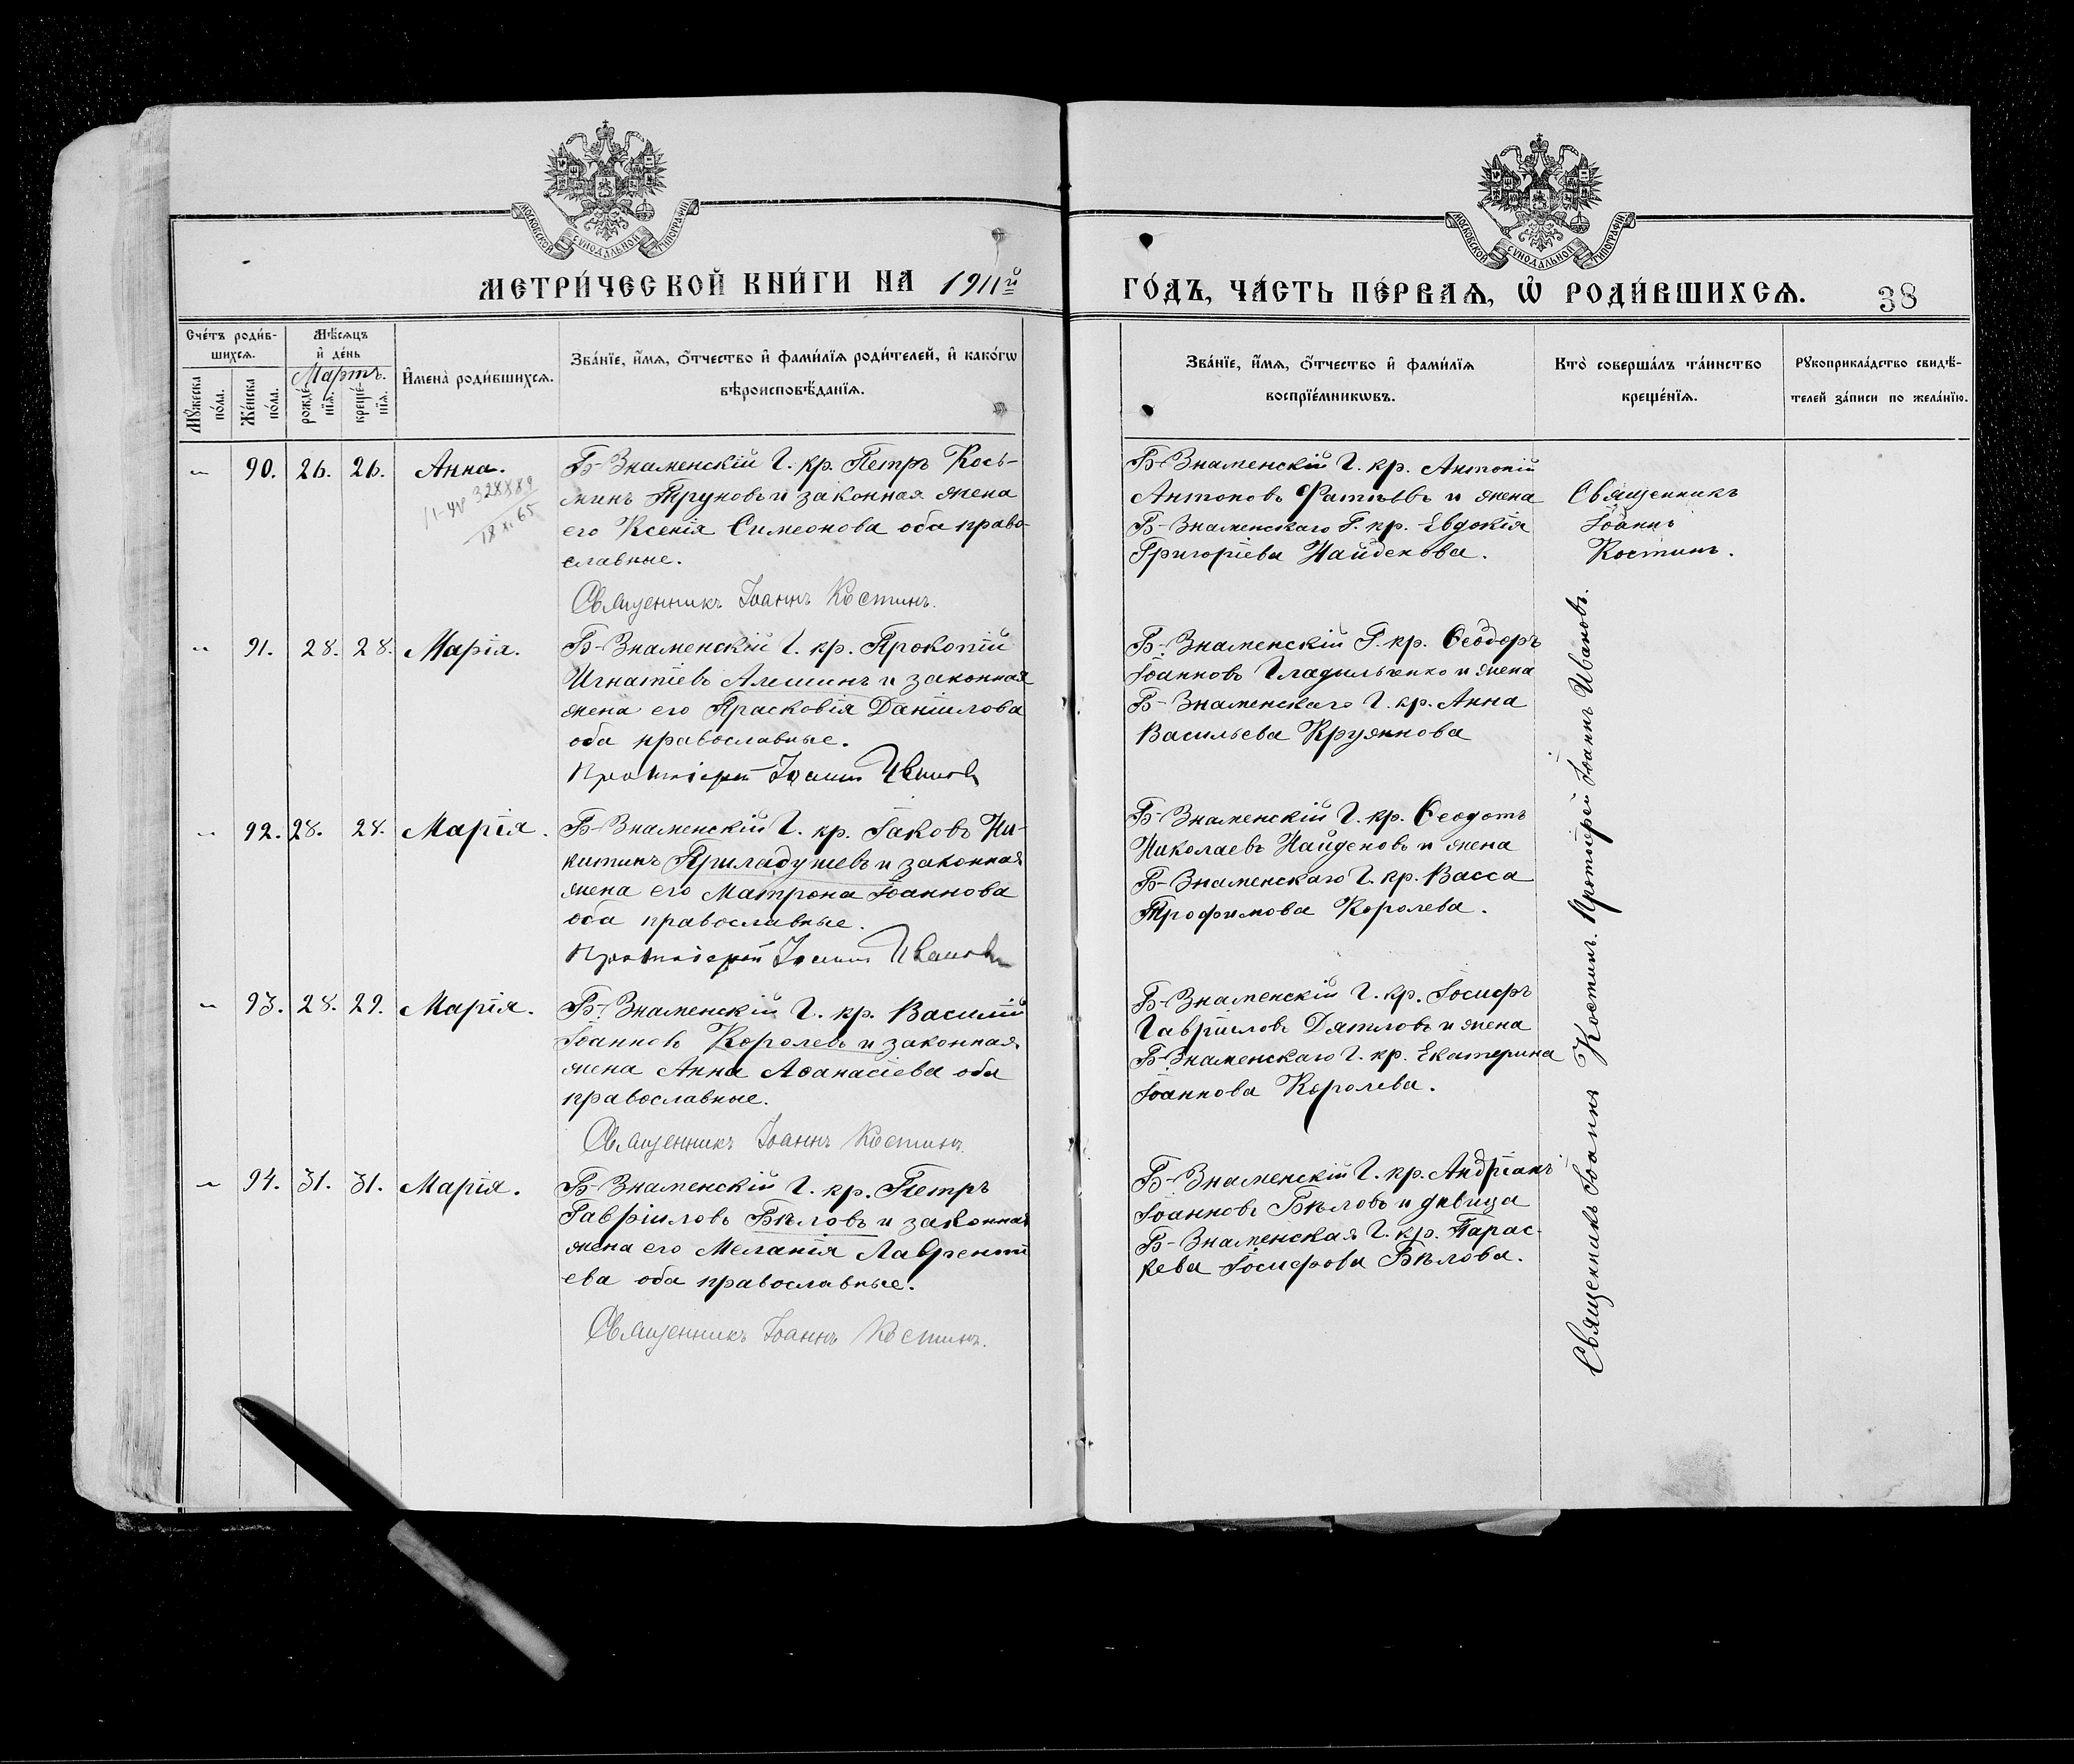 МОСКОВСКОЙ СѴНОДАЛЬНОЙ ТИПОГРАФІИ
МЕТРИ́ЧЕСКОЙ КНИ́ГИ НА 1911й
Сче́тъ роди́в-
шихсѧ.
Мꙋ́жеска
по́ла.
Же́нска
по́ла.
Мѣ́сѧцъ
и҆ де́нь
Мартъ.
рожде́-
нїѧ.
креще́-
нїѧ.
И҆мена̀ роди́вшихсѧ.
Зва́нїе, и҆́мѧ, ѻ҆́тчество и҆ фами́лїѧ роди́телей, и҆ како́гѡ
вѣроисповѣ́данїѧ.
90. 26. 26. Анна.
328889
18 XI 65
Б-Знаменскій Г. кр. Петръ Кось-
минъ Труновъ и законная жена
его Ксенія Симеонова оба право-
славные.
Священникъ Іоаннъ Костинъ.
91. 28. 28. Марія.
Б-Знаменскій Г. кр. Прокопій
Игнатіевъ Алешинъ и законная
жена его Прасковія Даніилова
оба православные.
Протоіерей Іоаннъ Ивановъ
92. 28. 28. Марія.
Б-Знаменскій Г. кр. Іаковъ Ни-
китинъ Приладушевъ и законная
жена его Матрона Іоаннова
оба православные.
Протоіерей Іоаннъ Ивановъ
93. 28. 29. Марія.
Б-Знаменскій Г. кр. Василій
Іоанновъ Королевъ и законная
жена Анна Аѳанасіева оба
православные.
Священникъ Іоаннъ Костинъ.
94. 31. 31. Марія.
Б-Знаменскій Г. кр. Петръ
Гавріиловъ Бѣловъ и законная
жена его Меланія Лаврентi
ева оба православные.
Священникъ Іоаннъ Костинъ.
МОСКОВСКОЙ СѴНОДАЛЬНОЙ ТИПОГРАФІИ
ГО́ДЪ, ЧА́СТЬ ПЕ́РВАѦ, Ѡ҆ РОДИ́ВШИХСѦ. 38
Зва́нїе, и҆́мѧ, ѻ҆́тчество и҆ фами́лїѧ
воспрїе́мникѡвъ.
Кто̀ соверша́лъ та́инство
креще́нїѧ.
Рꙋкоприкла́дство свидѣ́-
телей за́писи по жела́нїю.
Б-Знаменскій Г. кр. Антоній
Антоновъ Фатѣевъ и жена
Б-Знаменскаго Г. кр. Евдокія
Григоріева Найденова.
Священникъ
Іоаннъ
Костинъ.
Б-Знаменскій Г. кр. Ѳеодоръ
Іоанновъ Гладильченко и жена
Б-Знаменскаго Г. кр. Анна
Васильева Круяннова
Б-Знаменскій Г. кр. Ѳеодотъ
Николаевъ Найденовъ и жена
Б-Знаменскаго Г. кр. Васса
Трофимова Королева.
Б-Знаменскій Г. кр. Іосифъ
Гавріиловъ Дятловъ и жена
Б-Знаменскаго Г. кр. Екатерина
Іоаннова Королева.
Б-Знаменскій Г. кр. Андріанъ
Іоанновъ Бѣловъ и дѣвица
Б-Знаменская Г. кр. Парас-
кева Іосифова Бѣлова.
Священникъ Іоаннъ Костинъ. Протоіерей Іоаннъ Ивановъ.